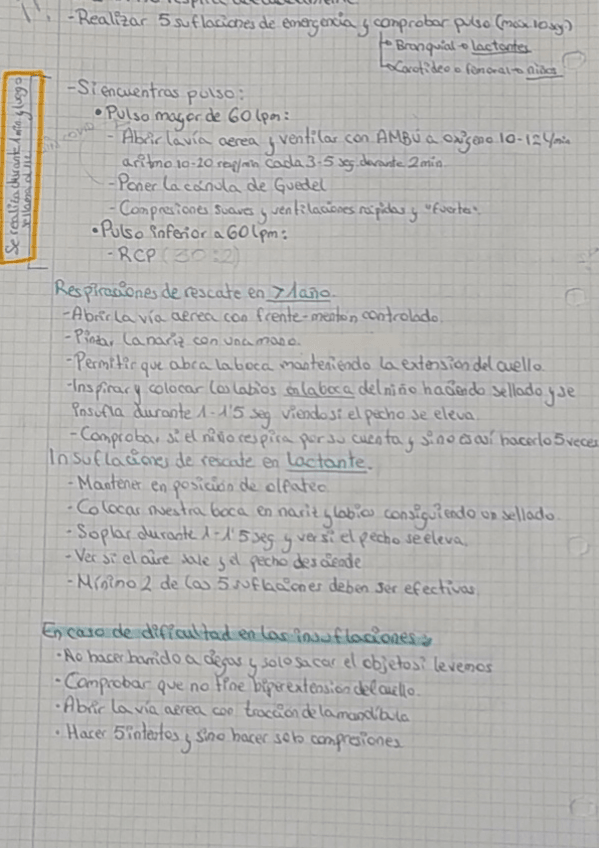 - Realizar 5 suflaciones de emergencia y comprobar pulso (max 10 sg)
↳ Branquial → lactantes
↳ Carotideo o femoral → niños
Se realiza durante 1 min y luego se llama al 112
- Si encuentras pulso:
• Pulso mayor de 60 lpm:
- Abrir la vía aerea y ventilar con AMBÚ a oxígeno 10-12 l/min
a ritmo 10-20 resp/min cada 3-5 seg durante 2 min.
- Poner la cánula de Guedel
- Compresiones suaves y ventilaciones rápidas y "fuertes".
• Pulso inferior a 60 lpm:
- RCP (30:2)
Respiraciones de rescate en >1 año.
- Abrir la vía aerea con frente-mentón controlado.
- Pinzar la nariz con una mano.
- Permitir que abra la boca manteniendo la extension del cuello.
- Inspirar y colocar los labios en la boca del niño haciendo sellado y se
insufla durante 1-1'5 seg viendo si el pecho se eleva.
- Comprobar si el niño respira por su cuenta y si no es así hacerlo 5 veces
Insuflaciones de rescate en lactante.
- Mantener en posición de olfateo.
- Colocar nuestra boca en nariz y labios consiguiendo un sellado.
- Soplar durante 1-1'5 seg y ver si el pecho se eleva.
- Ver si el aire sale y el pecho desciende
- Mínimo 2 de las 5 suflaciones deben ser efectivas.
En caso de dificultad en las insuflaciones:
• No hacer barrido a ciegas y solo sacar el objeto si lo vemos
• Comprobar que no tiene hiperextension del cuello.
• Abrir la vía aerea con tracción de la mandíbula
• Hacer 5 intentos y sino hacer solo compresiones